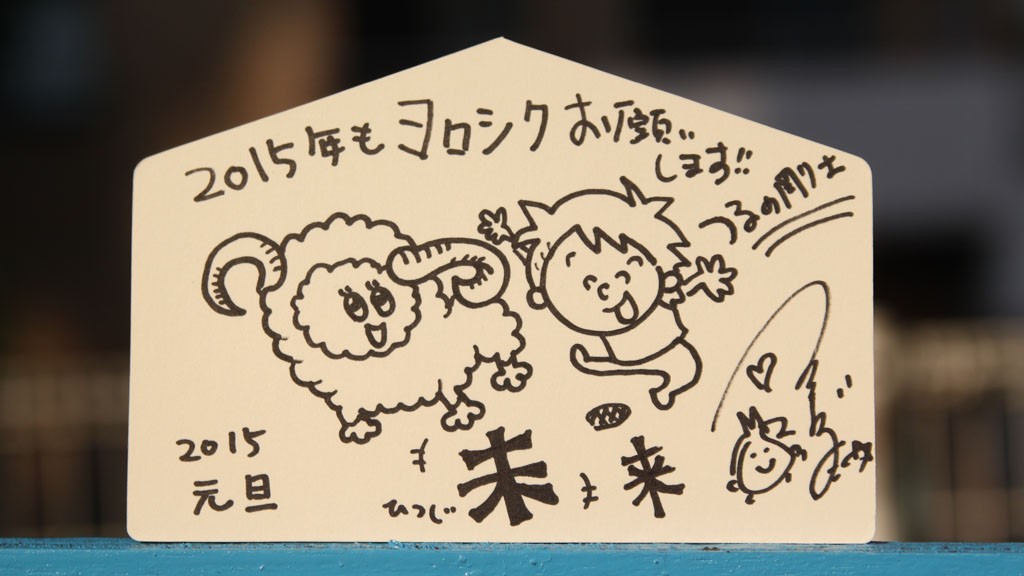 2015年もヨロシクお願い
します!!
つるの剛士
2015
元旦
ひつじ 未 来